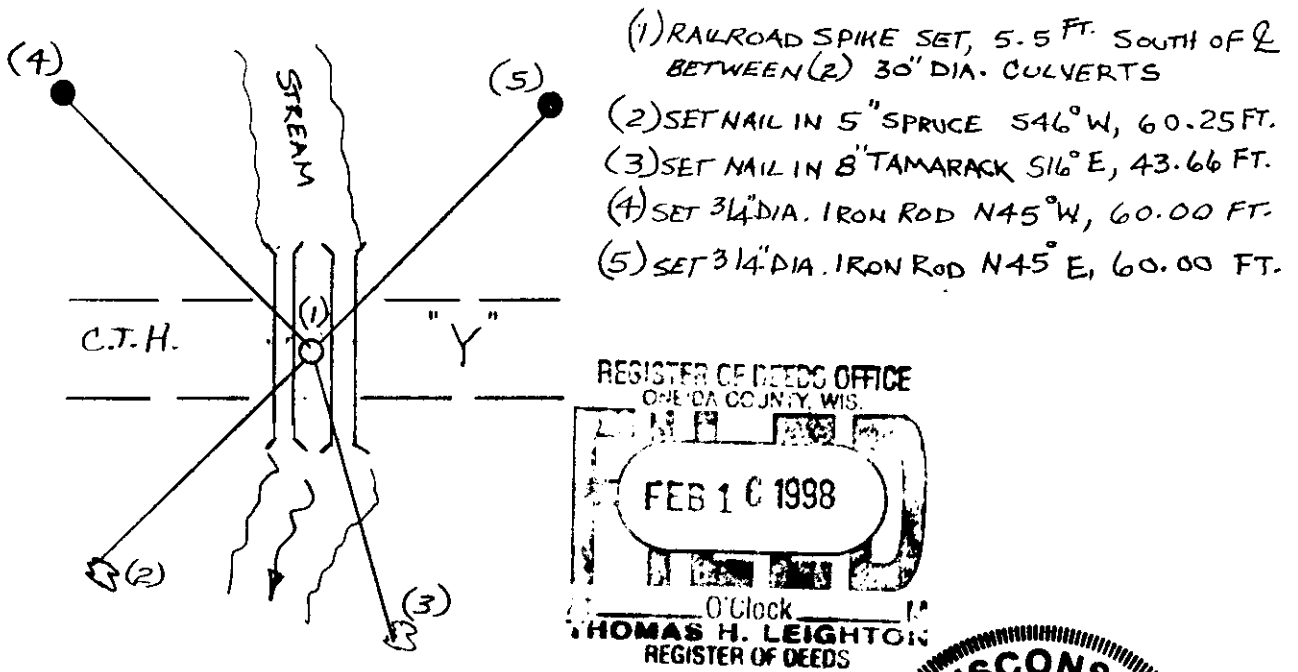 (1) RAILROAD SPIKE SET, 5.5 FT. SOUTH OF ℄
BETWEEN (2) 30" DIA. CULVERTS
(2) SET NAIL IN 5" SPRUCE S46°W, 60.25 FT.
(3) SET NAIL IN 8" TAMARACK S16°E, 43.66 FT.
(4) SET 3/4" DIA. IRON ROD N45°W, 60.00 FT.
(5) SET 3/4" DIA. IRON ROD N45°E, 60.00 FT.
(4)
(5)
STREAM
(1)
C.T.H. "Y"
(2)
(3)
REGISTER OF DEEDS OFFICE
ONEIDA COUNTY, WIS.
FEB 1 0 1998
O'Clock M
THOMAS H. LEIGHTON
REGISTER OF DEEDS
SCONS